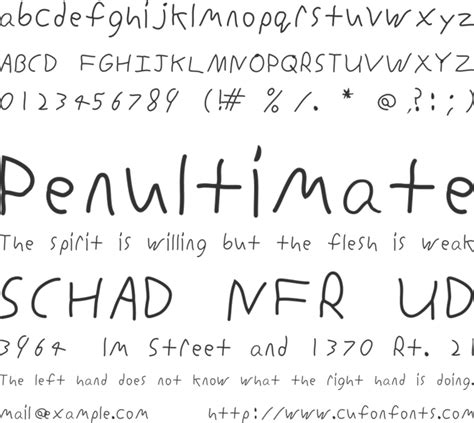 abcdefghijklmnopqrstuvwxyz
ABCD FGHIJKLMNOPQRSTUVWXYZ
0123456789 (!# % /. * @ ,?:;)
Penultimate
The spirit is willing but the flesh is weak
SCHAD NFR UD
3964 Im Street and 1370 Rt. 21
The left hand does not know what the right hand is doing.
mail@example.com http://www.cufonfonts.com